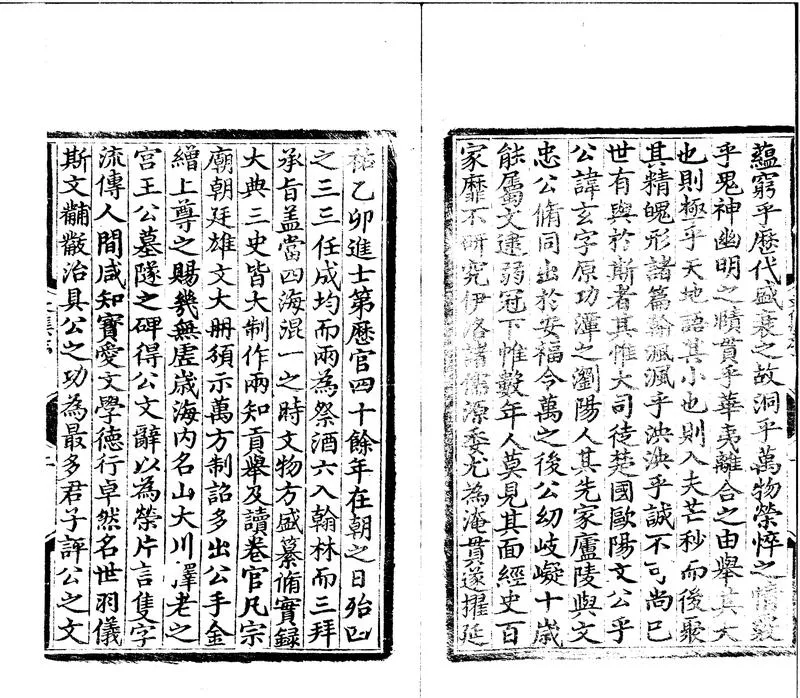 蘊窮乎歷代盛衰之故洞乎萬物榮悴之情覈
乎鬼神幽明之賾貫乎華夷離合之由舉其大
也則極乎天地語其小也則入夫芒秒而後聚
其精魄形諸篇翰渢渢乎泱泱乎誠不可尚已
世有與於斯者其惟大司徒楚國歐陽文公乎
公諱玄字原功潭之瀏陽人其先家廬陵與文
忠公脩同出於安福令萬之後公幼岐嶷十歲
能屬文逮弱冠下帷數年人莫見其面經史百
家靡不研究伊洛諸儒源委尤為淹貫遂擢延
祐乙卯進士第歷官四十餘年在朝之日殆四
之三三任成均而兩為祭酒六入翰林而三拜
承旨盖當四海混一之時文物方盛纂脩實録
大典三史皆大制作兩知貢舉及讀卷官凡宗
廟朝廷雄文大冊頒示萬方制詔多出公手金
繒上尊之賜幾無虛歲海内名山大川釋老之
宮王公墓隧之碑得公文辭以為榮片言隻字
流傳人間咸知寳愛文學德行卓然名世羽儀
斯文黼黻治具公之功為最多君子評公之文